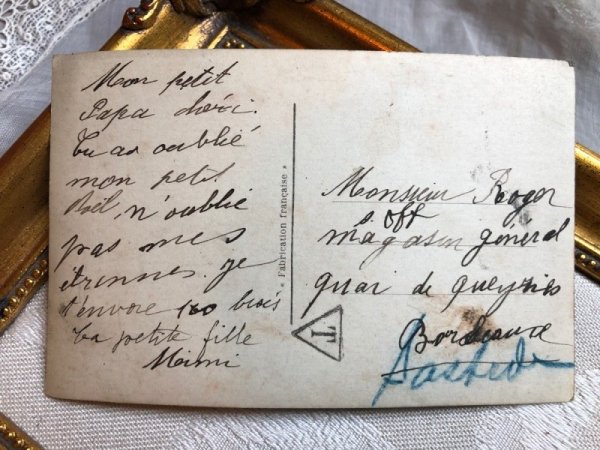 Mon petit
Papa chéri.
Tu as oublié
mon petit
Noël, n'oublie
pas mes
étrennes. je
t'envoie 100 bises
ta petite fille
Mimi
« Fabrication française »
T
Monsieur Roger
s. off
magasin général
quai de queyries
Bordeaux